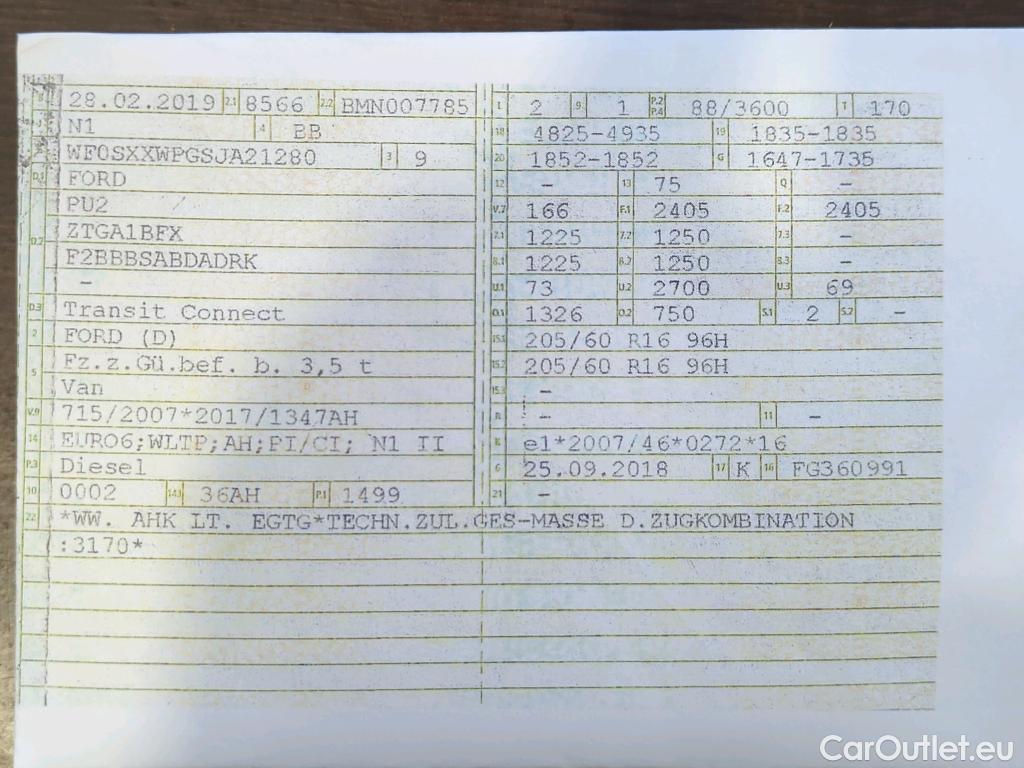 B 28.02.2019 2.1 8566 2.2 BMN007785
J N1 4 BB
WF0SXXWPGSJA21280 3 9
D.1 FORD
PU2
D.2 ZTGA1BFX
F2BBBSABDADRK
-
D.3 Transit Connect
2 FORD (D)
5 Fz.z.Gü.bef. b. 3,5 t
Van
V.9 715/2007*2017/1347AH
14 EURO6;WLTP;AH;PI/CI; N1 II
P.3 Diesel
10 0002 14.1 36AH P.1 1499
L 2 9 1 P.2 P.4 88/3600 T 170
18 4825-4935 19 1835-1835
20 1852-1852 G 1647-1735
12 - 13 75 Q -
V.7 166 F.1 2405 F.2 2405
7.1 1225 7.2 1250 7.3 -
8.1 1225 8.2 1250 8.3 -
U.1 73 U.2 2700 U.3 69
O.1 1326 O.2 750 S.1 2 S.2 -
15.1 205/60 R16 96H
15.2 205/60 R16 96H
15.3 -
R - 11 -
K e1*2007/46*0272*16
6 25.09.2018 17 K 16 FG360991
21 -
22 *WW. AHK LT. EGTG*TECHN.ZUL.GES-MASSE D.ZUGKOMBINATION
:3170*
CarOutlet.eu